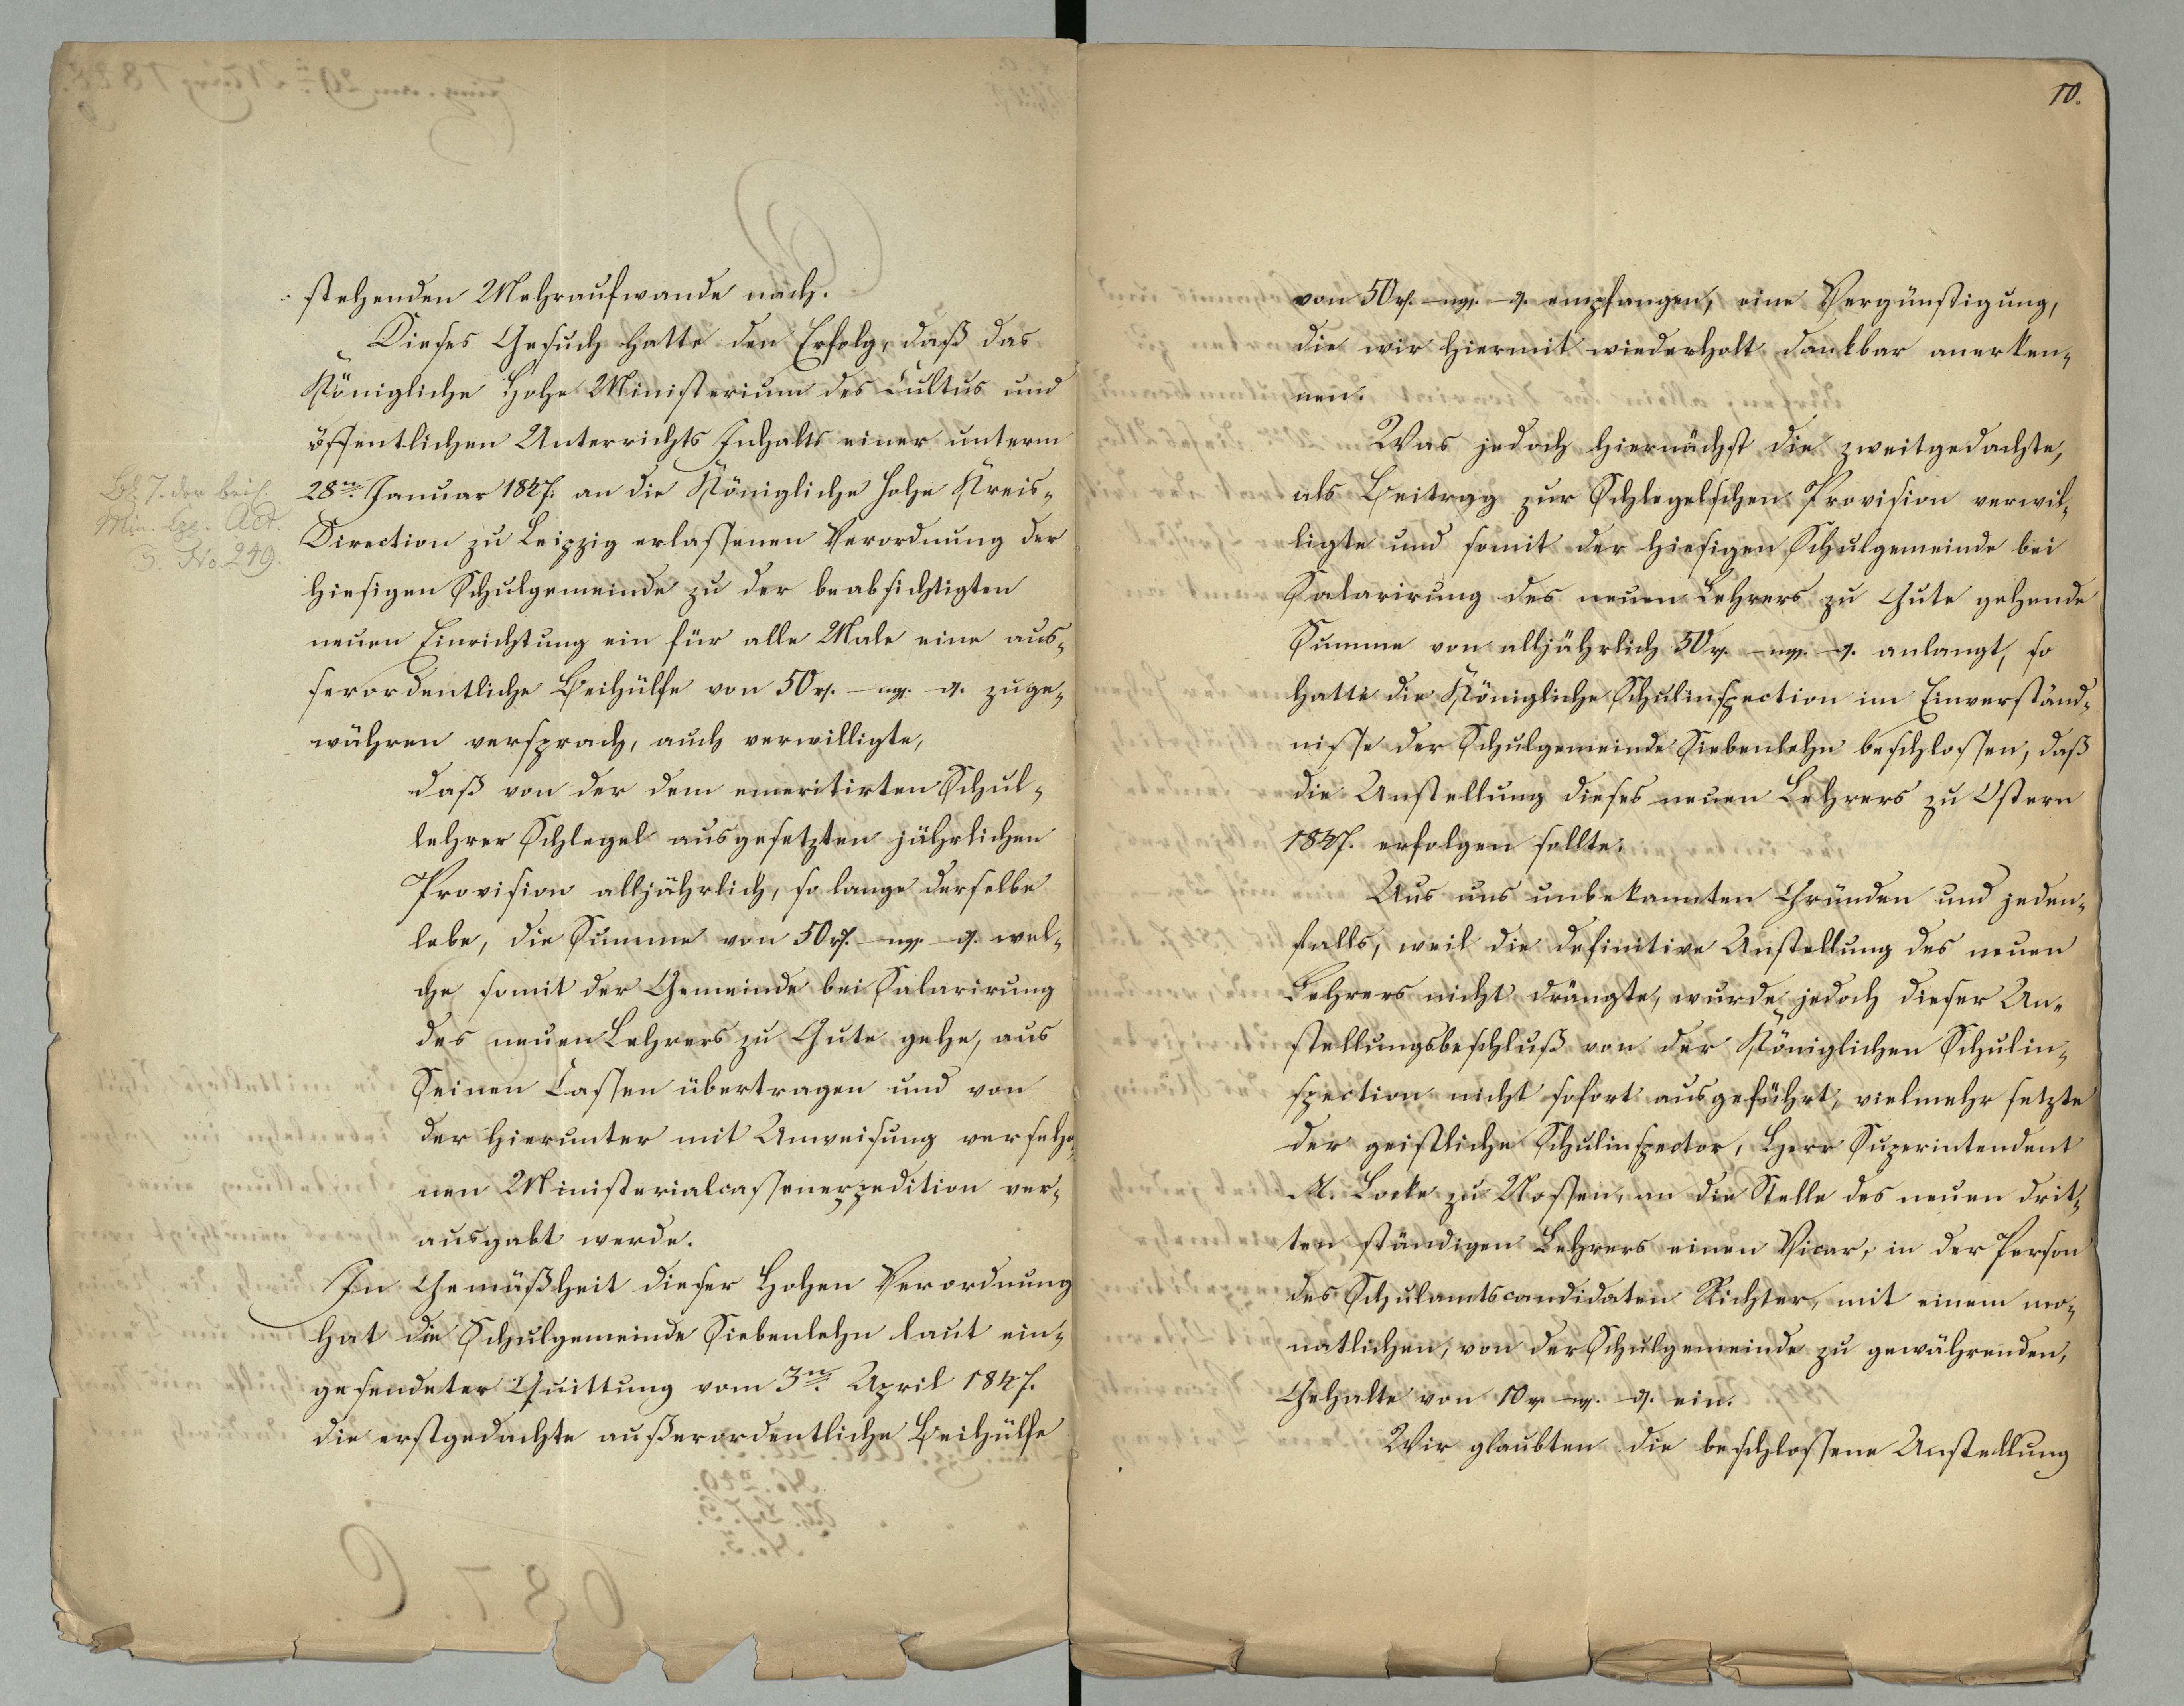 stehenden Mehraufwande nach.
Dieses Gesuch hatte den Erfolg, daß das
Königliche Hohe Ministerium des Cultus und
öffentlichen Unterrichts Inhalts einer unterm
28n. Januar 1847. an die Königliche Hohe Kreis-
Direction zu Leipzig erlassenen Verordnung der
hiesigen Schulgemeinde zu der beabsichtigten
neuen Einrichtung ein für alle Male eine aus-
serordentliche Beihülfe von 50 rf. – ngr. – d. zuge-
währen versprach, auch verwilligte,
daß von der dem emeritirten Schul-
lehrer Schlegel ausgesetzten jährlichen
Provision alljährlich, so lange derselbe
lebe, die Summe von 50 rf. – ngr. – d. wel-
che somit der Gemeinde bei Salarirung
des neuen Lehrers zu Gute gehe, aus
Seinen Cassen übertragen und von
der hierunter mit Anweisung versehe-
nen Ministerialcassenexpedition ver-
ausgabt werde.
In Gemäßheit dieser Hohen Verordnung
hat die Schulgemeinde Siebenlehn laut ein-
gesendeter Quittung vom 3n. April 1847.
die erstgedachte außerordentliche Beihülfe
Bl. 7. der beif.
Min. Act.
S. No. 249.
10.
von 50 rf. – ngr. – d. empfangen, eine Vergünstigung,
die wir hiermit wiederholt dankbar anerken-
nen.
Was jedoch hiernächst die zweitgedachte,
als Beitrag zur Schlegelschen Provision verwil-
ligte und somit der hiesigen Schulgemeinde bei
Salarirung des neuen Lehrers zu Gute gehende
Summe von alljährlich 50 rf. – ngr. – d. anlangt, so
hatte die Königliche Schulinspection im Einverständ-
nisse der Schulgemeinde Siebenlehn beschlossen, daß
die Anstellung dieses neuen Lehrers zu Ostern
1847. erfolgen sollte.
Aus uns unbekannten Gründen und jeden-
falls, weil die definitive Anstellung des neuen
Lehrers nicht drängte, wurde jedoch dieser An-
stellungsbeschluß von der Königlichen Schulin-
spection nicht sofort ausgeführt, vielmehr setzte
der geistliche Schulinspector, Herr Superintendent
M. Locke zu Nossen, an die Stelle des neuen drit-
ten ständigen Lehrers einen Vicar, in der Person
des Schulamtscandidaten Richter, mit einem mo-
natlichen, von der Schulgemeinde zu gewährenden,
Gehalte von 10 rf. – ngr. – d. ein.
Wir glaubten die beschlossene Anstellung